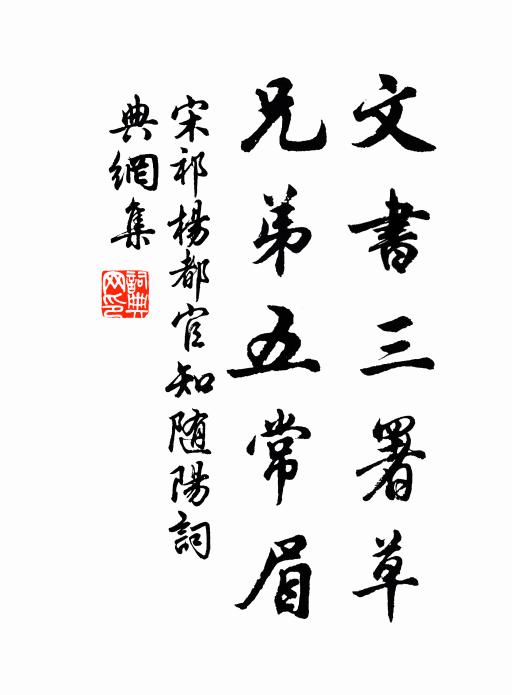 文書三署草
兄弟五常眉
宋祁楊都官知随陽詞
典網集
詞典網印